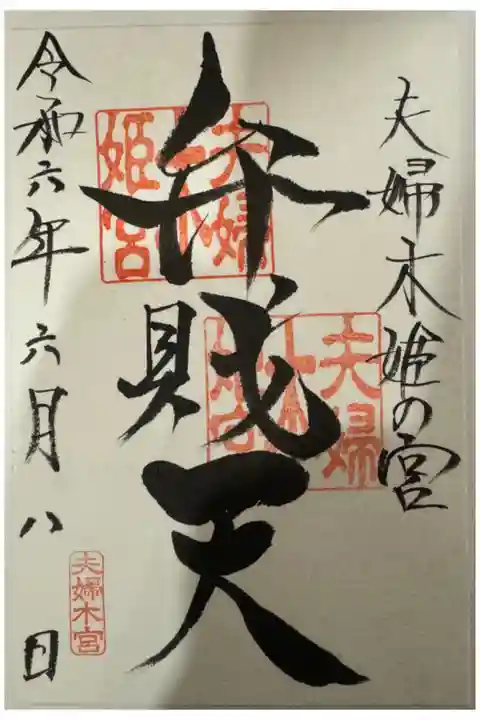 夫婦木姫の宮
弁財天
令和六年六月八日
夫婦木姫宮
夫婦木姫宮
夫婦木宮